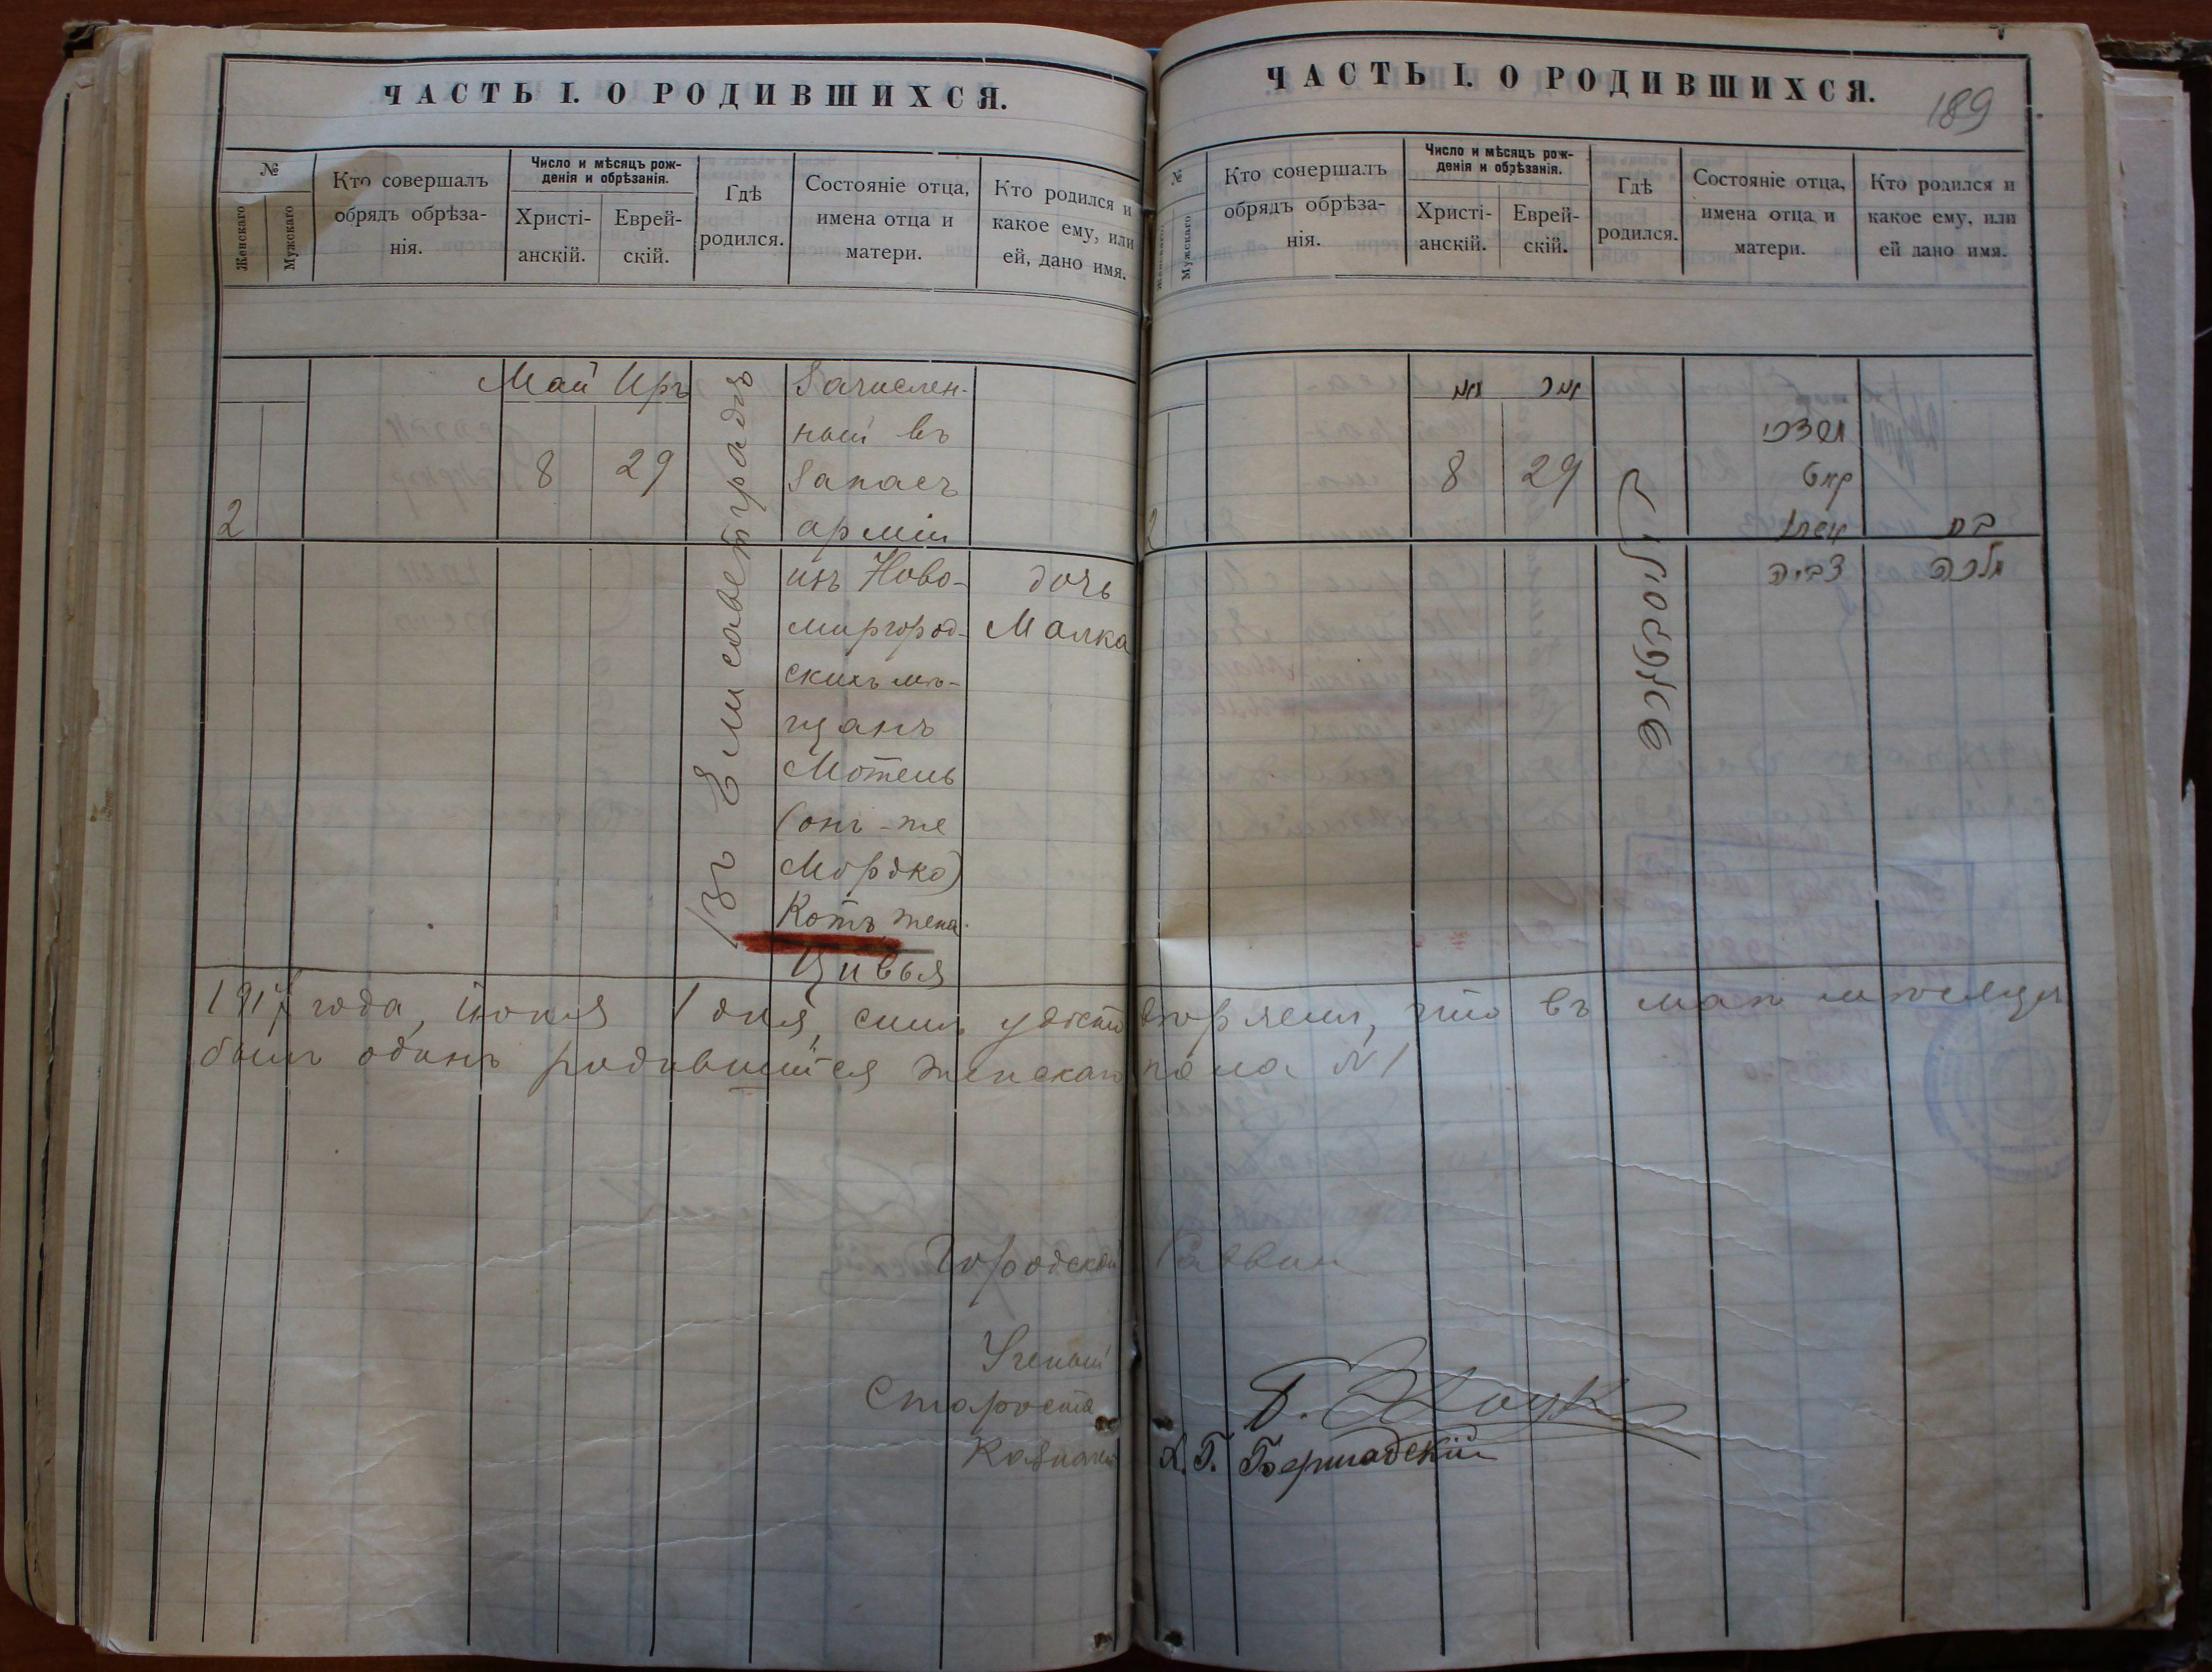 ЧАСТЬ I. О РОДИВШИХСЯ.
№
Женскаго
Мужскаго
Кто совершалъ
обрядъ обрѣза-
нія.
Число и мѣсяцъ рож-
денія и обрѣзанія.
Христі-
анскій.
Еврей-
скій.
Гдѣ
родился.
Состояніе отца,
имена отца и
матери.
Кто родился и
какое ему, или
ей, дано имя.
2
Май Иръ
8 29
въ Елисаветградѣ
Зачислен-
ный въ
Запасъ
арміи
изъ Ново-
миргород-
скихъ мѣ-
щанъ
Мотель
(онъ-же
Мордко)
Котъ жена
Цивья
дочь
Малка
ЧАСТЬ I. О РОДИВШИХСЯ.
189
№
Женскаго
Мужскаго
Кто совершалъ
обрядъ обрѣза-
нія.
Число и мѣсяцъ рож-
денія и обрѣзанія.
Христі-
анскій.
Еврей-
скій.
Гдѣ
родился.
Состояніе отца,
имена отца и
матери.
Кто родился и
какое ему, или
ей дано имя.
2
8 29
מרדכי
קאט
צביה
בת
מלכה
1917 года, іюня 1 дня, симъ удостовѣряемъ, что въ маѣ мѣсяцѣ
былъ одинъ родившійся женскаго пола №1
Городской Раввинъ
Ученый
Староста
Казначей
Х. Г. Бершадскій